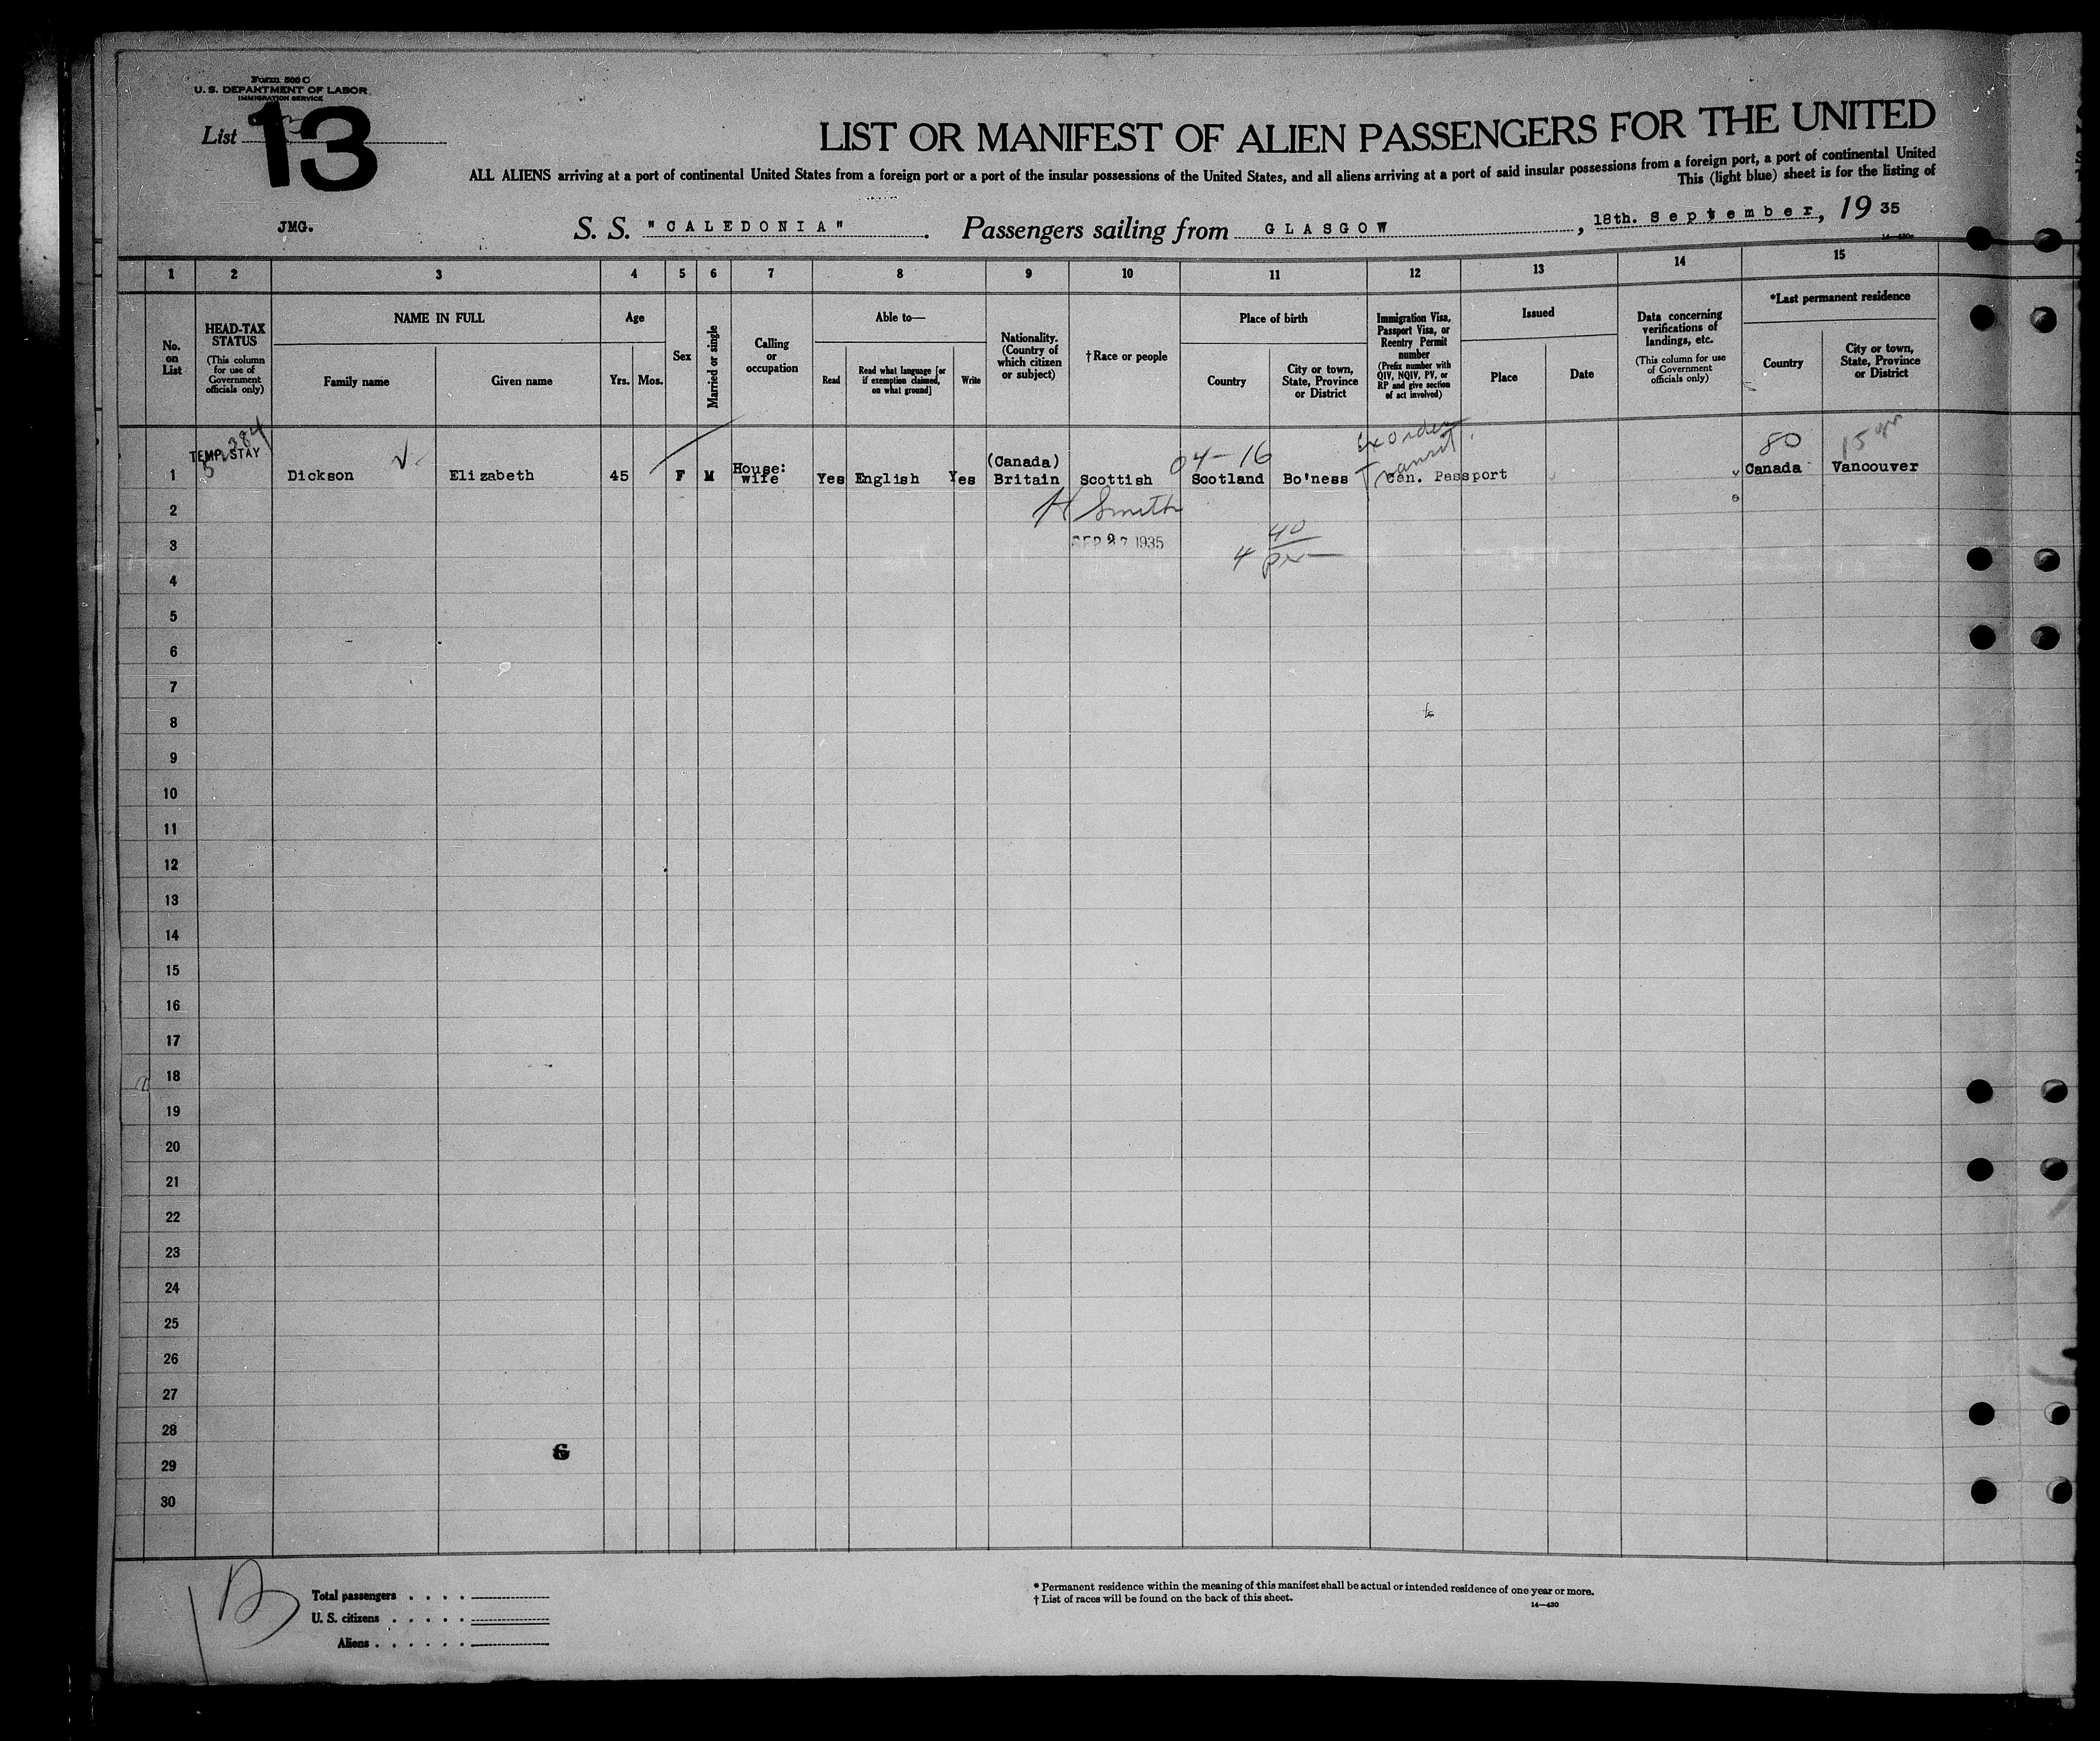 Form 500 C
U. S. DEPARTMENT OF LABOR
IMMIGRATION SERVICE
List 13
LIST OR MANIFEST OF ALIEN PASSENGERS FOR THE UNITED
ALL ALIENS arriving at a port of continental United States from a foreign port or a port of the insular possessions of the United States, and all aliens arriving at a port of said insular possessions from a foreign port, a port of continental United
This (light blue) sheet is for the listing of
JMG.
S. S. "CALEDONIA". Passengers sailing from GLASGOW, 18th. September, 1935
14—430
1 2 3 4 5 6 7 8 9 10 11 12 13 14 15
No. on List
HEAD-TAX STATUS
(This column for use of Government officials only)
NAME IN FULL
Family name
Given name
Age
Yrs. Mos.
Sex
Married or single
Calling or occupation
Able to—
Read
Read what language [or if exemption claimed, on what ground]
Write
Nationality. (Country of which citizen or subject)
†Race or people
Place of birth
Country
City or town, State, Province or District
Immigration Visa, Passport Visa, or Reentry Permit number
(Prefix number with QIV, NQIV, PV, or RP and give section of act involved)
Issued
Place
Date
Data concerning verifications of landings, etc.
(This column for use of Government officials only)
*Last permanent residence
Country
City or town, State, Province or District
TEMP. STAY
04-16
Ex order
Transit
80
15 yrs
1 Dickson Elizabeth 45 F M House: wife Yes English Yes (Canada) Britain Scottish Scotland Bo'ness Can. Passport Canada Vancouver
2
H Smith
3
SEP 27 1935
40
4
4
5
6
7
8
9
10
11
12
13
14
15
16
17
18
19
20
21
22
23
24
25
26
27
28
6
29
30
Total passengers . . . .
U. S. citizens . . . . .
Aliens . . . . . .
* Permanent residence within the meaning of this manifest shall be actual or intended residence of one year or more.
† List of races will be found on the back of this sheet.
14—430